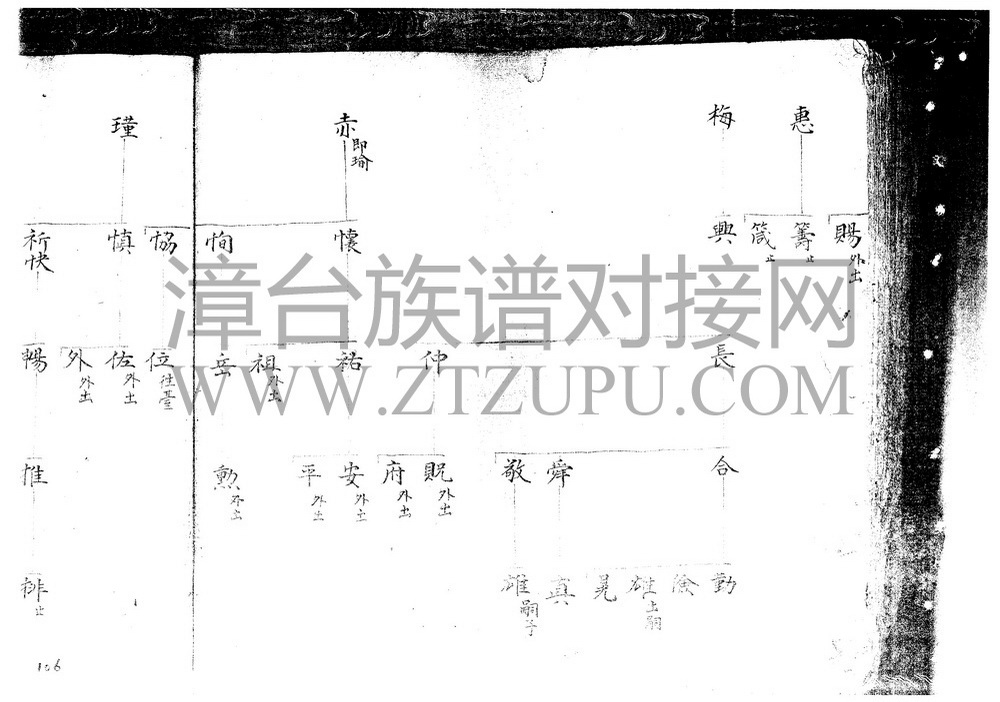 惠
梅
赤 即瑜
瑾
賜 外出
籌 止
箴 止
興
懷
恂
協
慎
祈
快
長
仲
祐
祖 外出
岳
位 往臺
佐 外出
外 外出
暢
合
舜
敬
貺 外出
府 外出
安 外出
平 外出
勲 外出
惟
勤
雄 出嗣
晃
真
雄 嗣子
排 止
106
漳台族谱对接网
WWW.ZTZUPU.COM